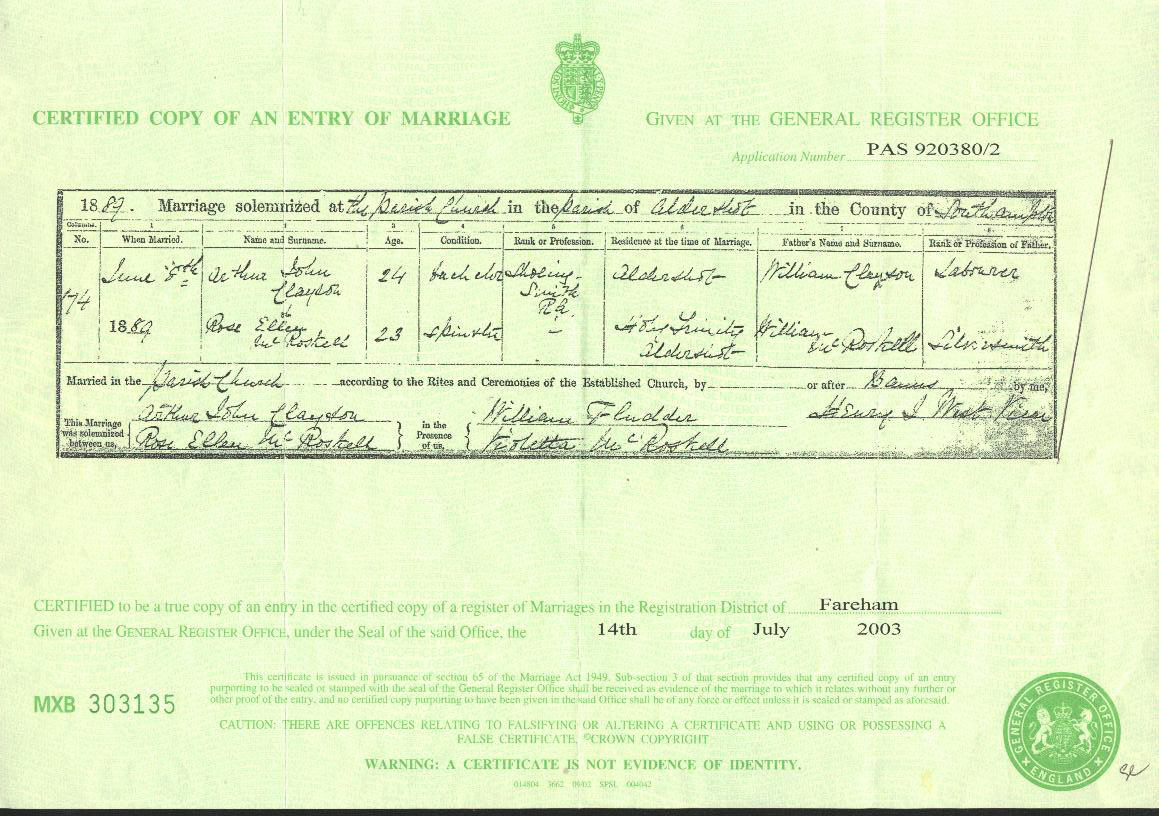 CERTIFIED COPY OF AN ENTRY OF MARRIAGE
GIVEN AT THE GENERAL REGISTER OFFICE
Application Number PAS 920380/2
1889. Marriage solemnized at the Parish Church in the Parish of Aldershot in the County of Southampton
Columns. 1 2 3 4 5 6 7 8
No. When Married. Name and Surname. Age. Condition. Rank or Profession. Residence at the time of Marriage. Father's Name and Surname. Rank or Profession of Father.
174 June Arthur John Clayson 24 bachelor Shoeing Smith R.A. Aldershot William Clayson Labourer
1889 Rose Ellen McRoskell 23 Spinster – Holy Trinity Aldershot William McRoskell Silversmith
Married in the Parish Church according to the Rites and Ceremonies of the Established Church, by or after Banns by me,
Arthur John Clayson William Fludder Henry J West Vicar
This Marriage was solemnized between us, in the Presence of us,
Rose Ellen McRoskell Violetta McRoskell
CERTIFIED to be a true copy of an entry in the certified copy of a register of Marriages in the Registration District of Fareham
Given at the GENERAL REGISTER OFFICE, under the Seal of the said Office, the 14th day of July 2003
MXB 303135
This certificate is issued in pursuance of section 65 of the Marriage Act 1949. Sub-section 3 of that section provides that any certified copy of an entry
purporting to be sealed or stamped with the seal of the General Register Office shall be received as evidence of the marriage to which it relates without any further or
other proof of the entry, and no certified copy purporting to have been given in the said Office shall be of any force or effect unless it is sealed or stamped as aforesaid.
CAUTION: THERE ARE OFFENCES RELATING TO FALSIFYING OR ALTERING A CERTIFICATE AND USING OR POSSESSING A
FALSE CERTIFICATE. ©CROWN COPYRIGHT
WARNING: A CERTIFICATE IS NOT EVIDENCE OF IDENTITY.
014804 3662 09/02 SPSL 004042
GENERAL REGISTER OFFICE
ENGLAND